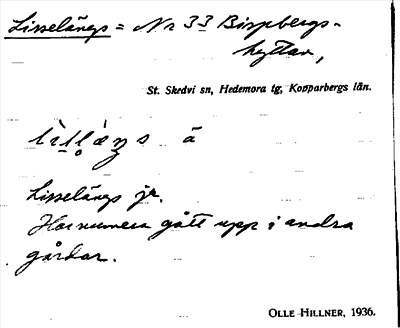 Lisselängs = Nr 33 Bispbergs-
hyttan,
St. Skedvi sn, Hedemora tg, Kopparbergs län.
ä
Lisselängs jr.
Har numera gått upp i andra
gårdar.
OLLE HILLNER, 1936.